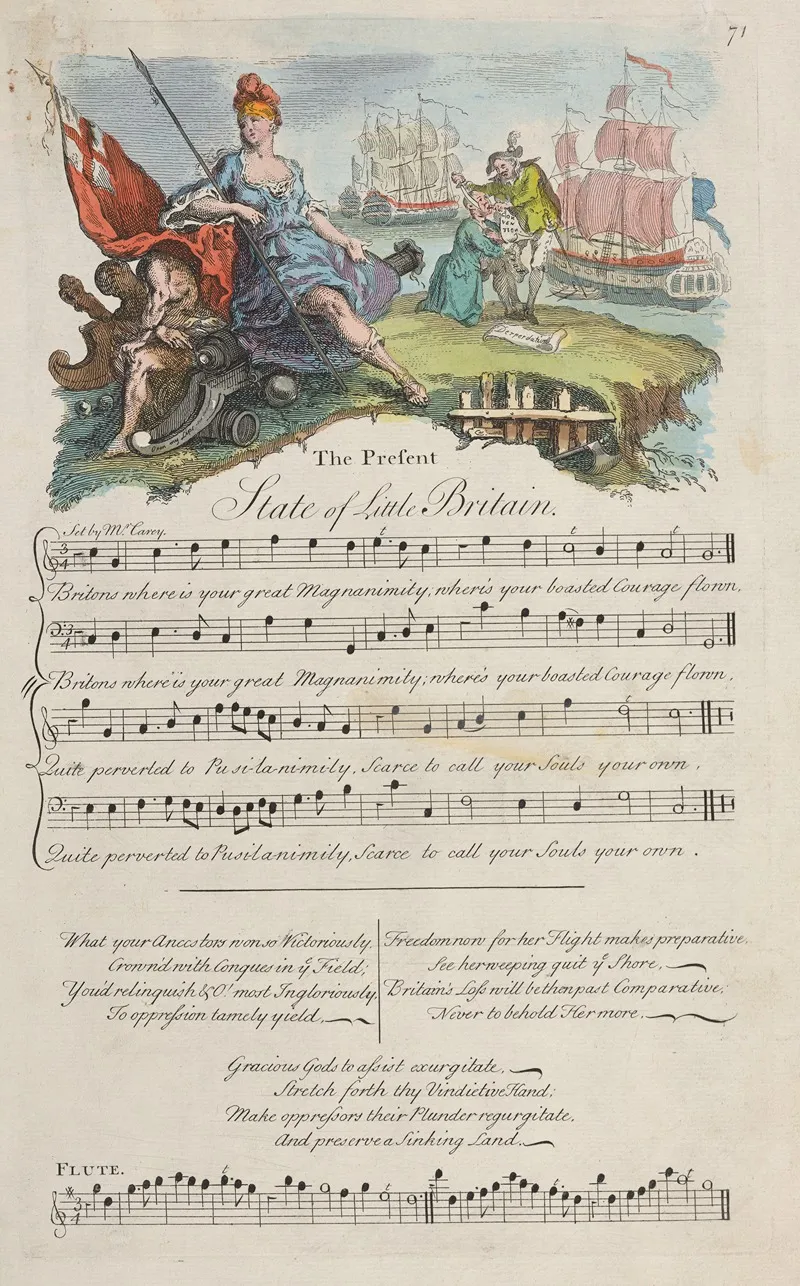 71
The Preſent
State of Little Britain.
Set by Mr. Carey.
Britons where is your great Magnanimity, wher's your boasted Courage flown,
Britons where is your great Magnanimity; where's your boasted Courage flown,
Quite perverted to Pu si-la-nimity, Scarce to call your Souls your own,
Quite perverted to Pusilanimity, Scarce to call your Souls your own.
What your Ancestors won so Victoriously,
Crown'd with Conques in ye Field;
You'd relinquish & O! most Ingloriously,
To oppreſsion tamely yield,
Freedom now for her Flight makes preparative,
See her weeping quit ye Shore,
Britain's Loſs will be then past Comparative,
Never to behold Her more.
Gracious Gods to aſsist exurgitate,
Stretch forth thy Vindictive Hand;
Make oppreſsors their Plunder regurgitate,
And preserve a Sinking Land.
FLUTE.